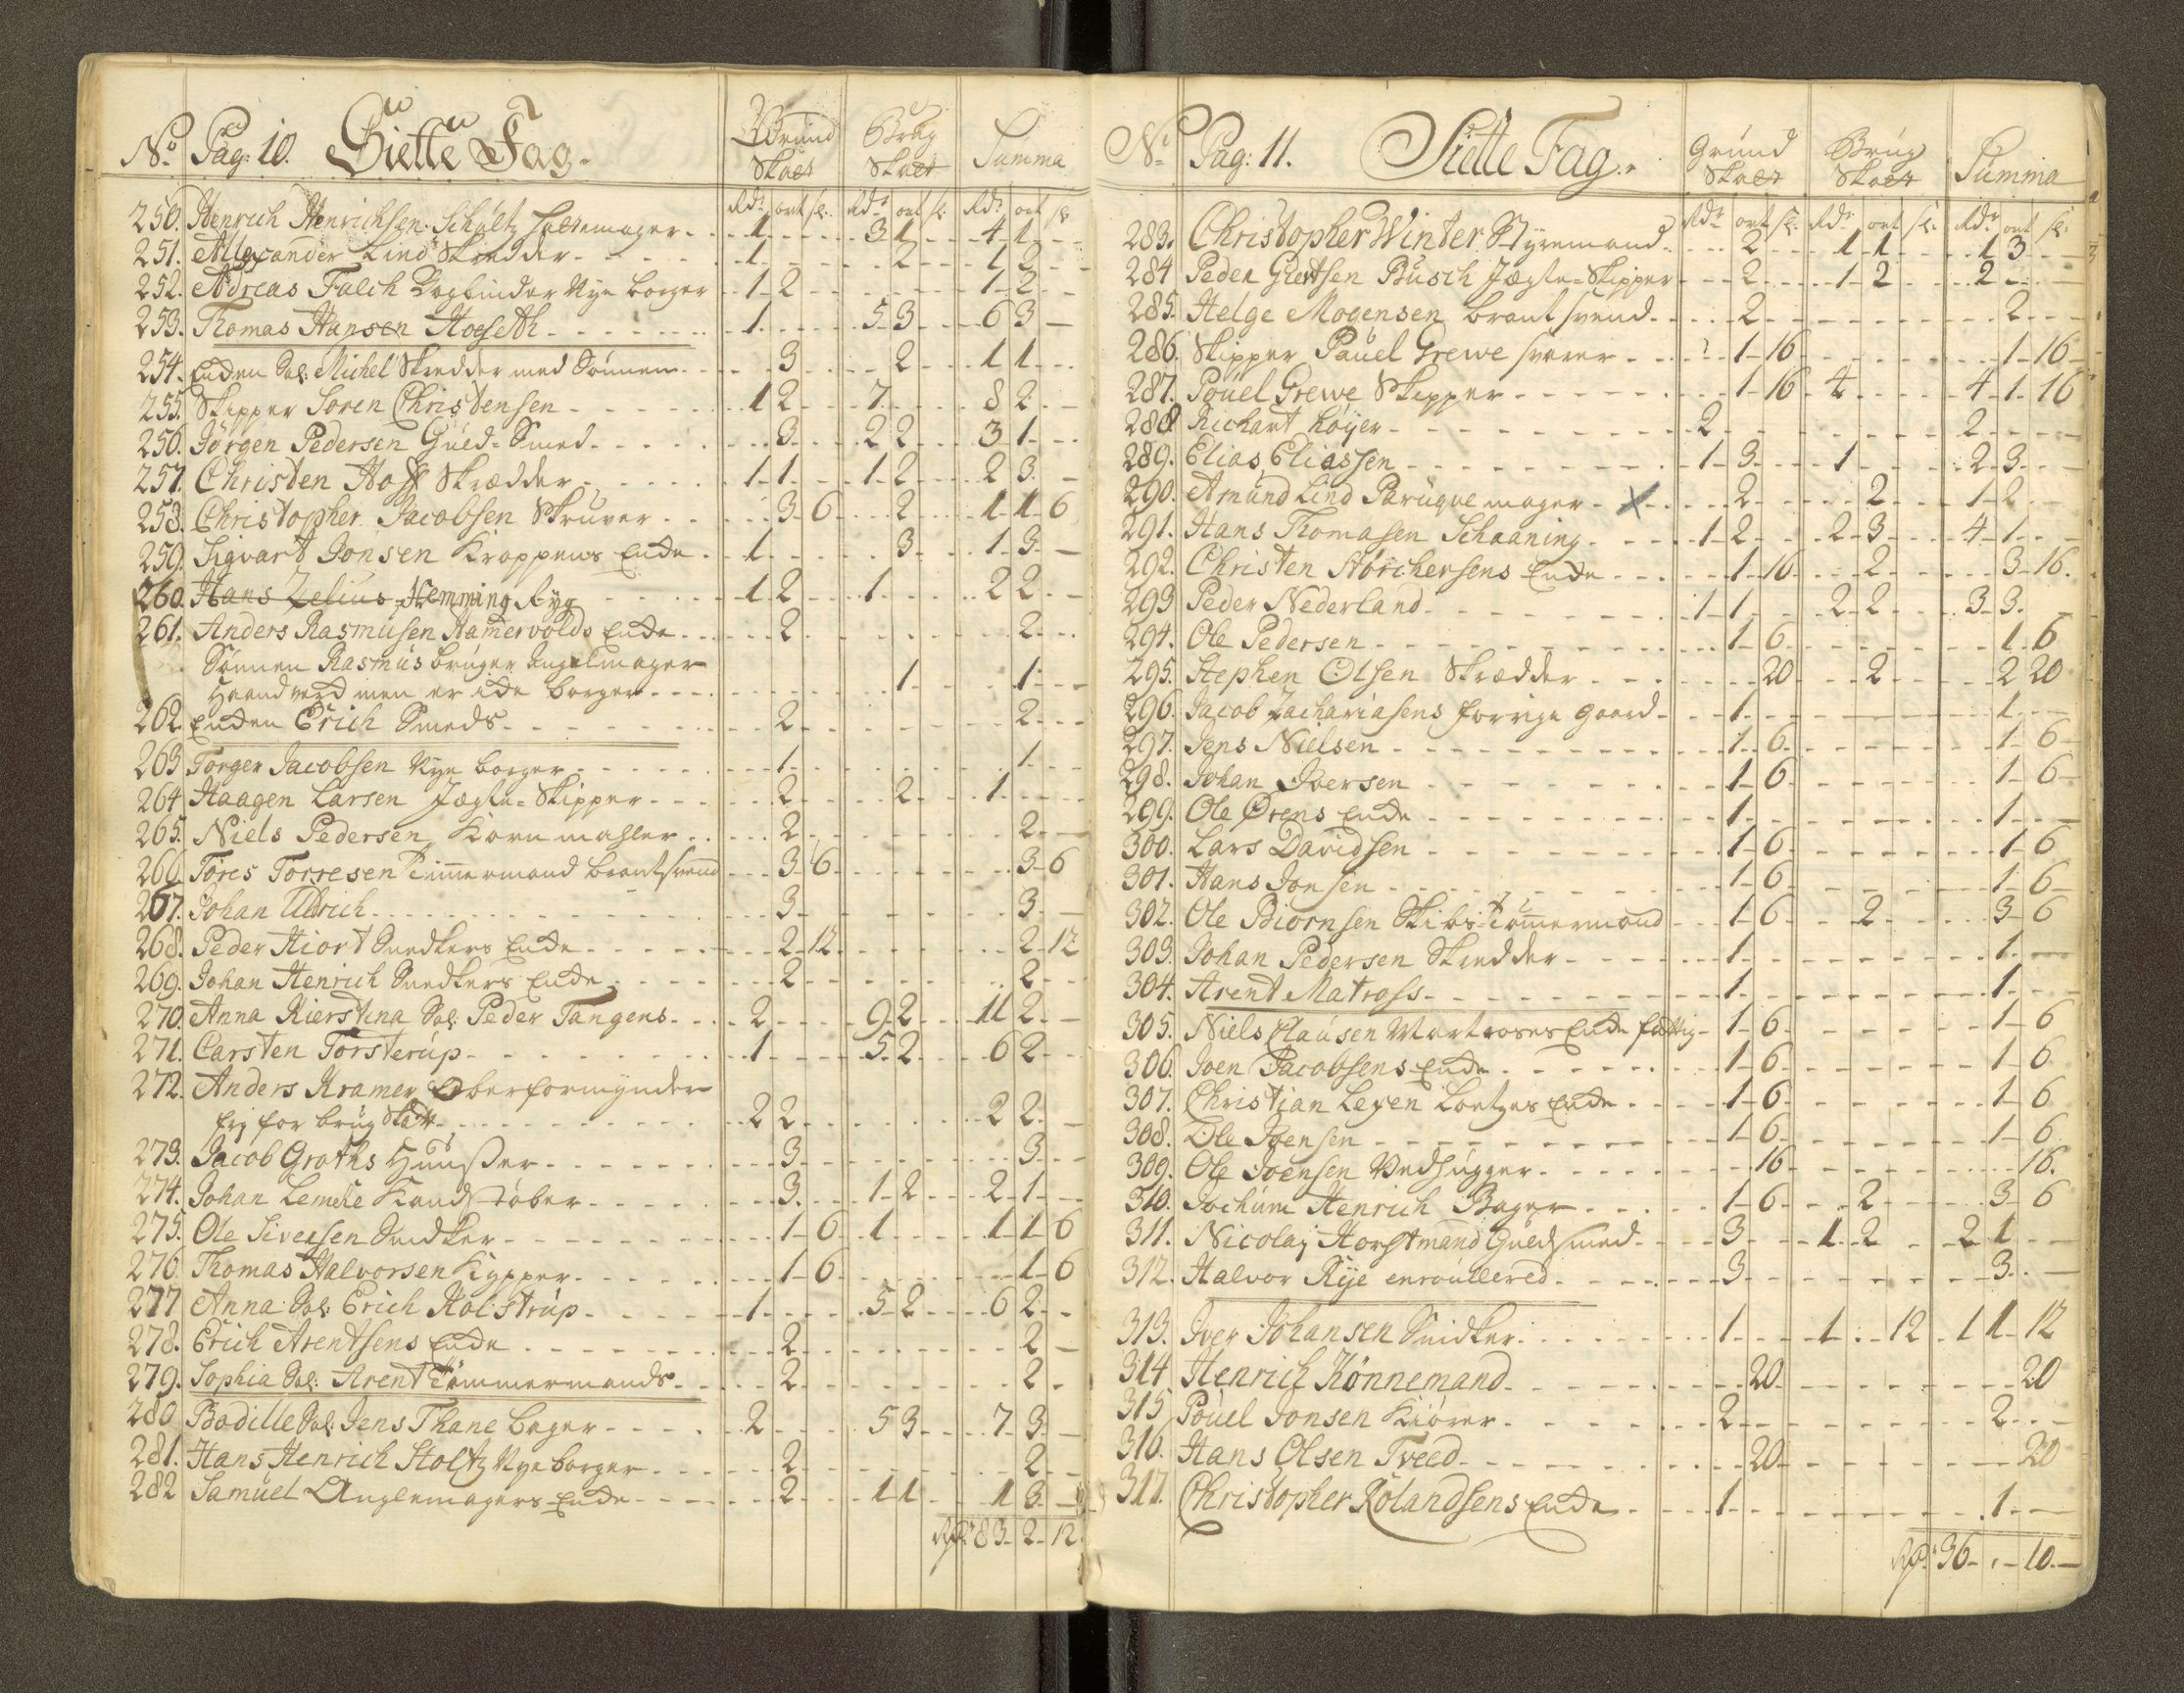 No Pag: 10. Siette Fag. Grund Skatt Brug Skatt Summa
Rdr ort sk. Rdr ort sk. Rdr ort sk
250. Henrich Henrichsen Schultz Hattemager 1 3 1 4 1
251. Allexander Lind Skredder 1 2 1 2
252. Andreas Falch Bogbinder Nye borger 1 2 1 2
253. Thomas Hansen Hoeseth 1 5 3 6 3
254. Enken Sal: Michel Skredder med Sönnen 3 2 1 1
255. Skipper Soren Christensen 1 2 7 8 2
256. Jörgen Pedersen Guld-Smed 3 2 2 3 1
257. Christen Hoff Skrædder 1 1 1 2 2 3
258. Christopher Jacobsen Skruver 3 6 2 1 1 6
259. Sigvart Jonsen Kroppens Enke 1 3 1 3
260. Hans Zelius Flemming Ryg 1 2 1 2 2
261. Anders Rasmusen Hamervolds Enke 2 2
Sönnen Rasmus bruger Angelmager
Haandverk men er icke borger 1 1
262 Enken Erich Smeds 2 2
263 Torger Jacobsen Nye borger 1 1
264 Haagen Larsen Jægte-Skipper 2 2 1
265. Niels Pedersen Kornmahler 2 2
266. Tores Torresen Timmermand brantsvend 3 6 3 6
267. Johan Uldrich 3 3
268. Peder Hiort Snedkers Enke 2 12 2 12
269. Johan Henrich Snedkers Enke 2 2
270. Anna Kierstina Sal: Peder Tangens 2 9 2 11 2
271. Carsten Torsterup 1 5 2 6 2
272. Anders Kramer Oberformynder
frj for brug Skatt 2 2 2 2
273. Jacob Groths Huuser 3 3
274. Johan Lemche Kandstöber 3 1 2 2 1
275. Ole Siversen Snidker 1 6 1 1 1 6
276. Thomas Halvorsen Kypper 1 6 1 6
277 Anna Sal: Erich Kolstrup 1 5 2 6 2
278. Erich Arentsens Enke 2 2
279. Sophia Sal: Arent Tömmermands 2 2
280 Bodille Sal: Jens Thane bager 2 5 3 7 3
281. Hans Henrich Stoltz Nye borger 2 2
282 Samuel Anglemagers Enke 2 1 1 1 3
Rdr 83 2 12
No Pag: 11. Siette Fag. Grund Skatt Brug Skatt Summa
Rdr ort sk. Rdr ort sk. Rdr ort sk.
283. Christopher Winter Styremand 2 1 1 1 3
284 Peder Giertsen Busch Jægte-Skipper 2 1 2 2
285. Helge Mogensen brantsvend 2 2
286. Skipper Pauel Grewe svarer 1 16 1 16
287. Pouel Grewe Skipper 1 16 4 4 1 16
288 Richart Höyer 2 2
289. Elias Eliassen 1 3 1 2 3
290. Amund Lind Paruquemager 2 2 1 2
291. Hans Thomasen Schaaning 1 2 2 3 4 1
292. Christen Störchersens Enke 1 16 2 3 16.
293 Peder Nederland 1 1 2 2 3 3
294. Ole Pedersen 1 6 1 6
295. Stephen Olsen Skrædder 20 2 2 20
296. Jacob Zachariasens forrige gaard 1 1
297. Jens Nielsen 1 6 1 6
298. Johan Iversen 1 6 1 6
299. Ole Ørens Enke 1 1
300. Lars Davidsen 1 6 1 6
301. Hans Jonsen 1 6 1 6
302. Ole Biörnsen Skibs-Tömmermand 1 6 2 3 6
303. Johan Pedersen Skredder 1 1
304. Arent Matross 1 1
305. Niels Clausen Martroses Enke fattig 1 6 1 6
306. Iven Jacobsens Enke 1 6 1 6
307. Christian Leyen Loetzes Enke 1 6 1 6
308. Ole Ivensen 1 6 1 6
309. Ole Ivensen Vedhugger 16 16.
310. Jochum Henrich Bager 1 6 2 3 6
311. Nicolaj Horstmand Guldsmed 3 1 2 2 1
312. Halvor Rije enroullered 3 3
313. Iver Johansen Snidker 1 1 12 1 1 12
314 Henrich Könnemand 20 20
315 Pouel Jonsen Kiörer 2 2
316. Hans Olsen Tveed 20 20
317. Christopher Rolandsens Enke 1 1
Rdr 36 " 10